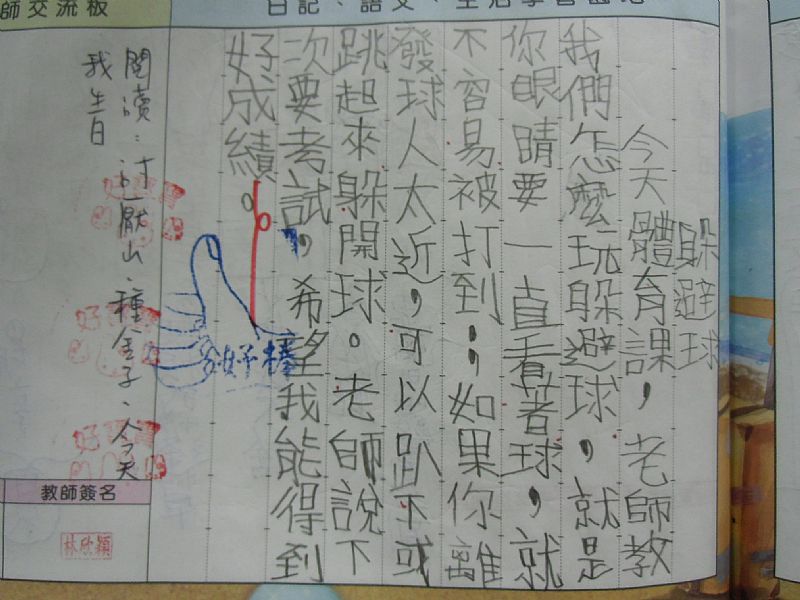 師交流板
躲避球
今天體育課，老師教
我們怎麼玩躲避球，就是
你眼睛要一直看著球，就
不容易被打到；如果你離
發球人太近，可以趴下或
跳起來躲開球。老師說下
次要考試，希望我能得到
好成績。
好棒
閱讀：討厭山、種金子、今天
我生日
教師簽名
林欣穎